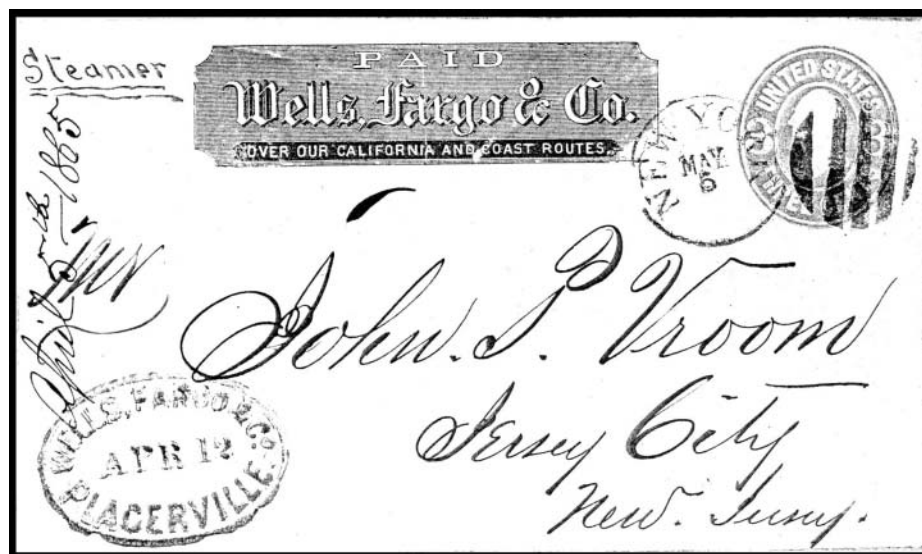 Steamer
PAID
Wells, Fargo & Co.
OVER OUR CALIFORNIA AND COAST ROUTES.
NEW YO
MAY
6
UNITED STATES
3
April 1865
Mr
John. P. Vroom
Jersey City
New. Jersey.
WELLS, FARGO & Co.
APR 12
PLACERVILLE.